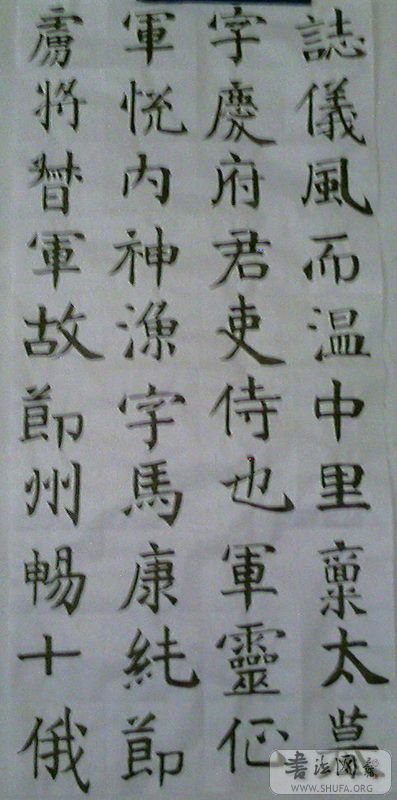 誌儀風而温中里稟太
字慶府君吏侍也軍靈
軍恍内神漁字馬康純節
虜將督軍故節州暢十俄
書法网
WWW.SHUFA.ORG